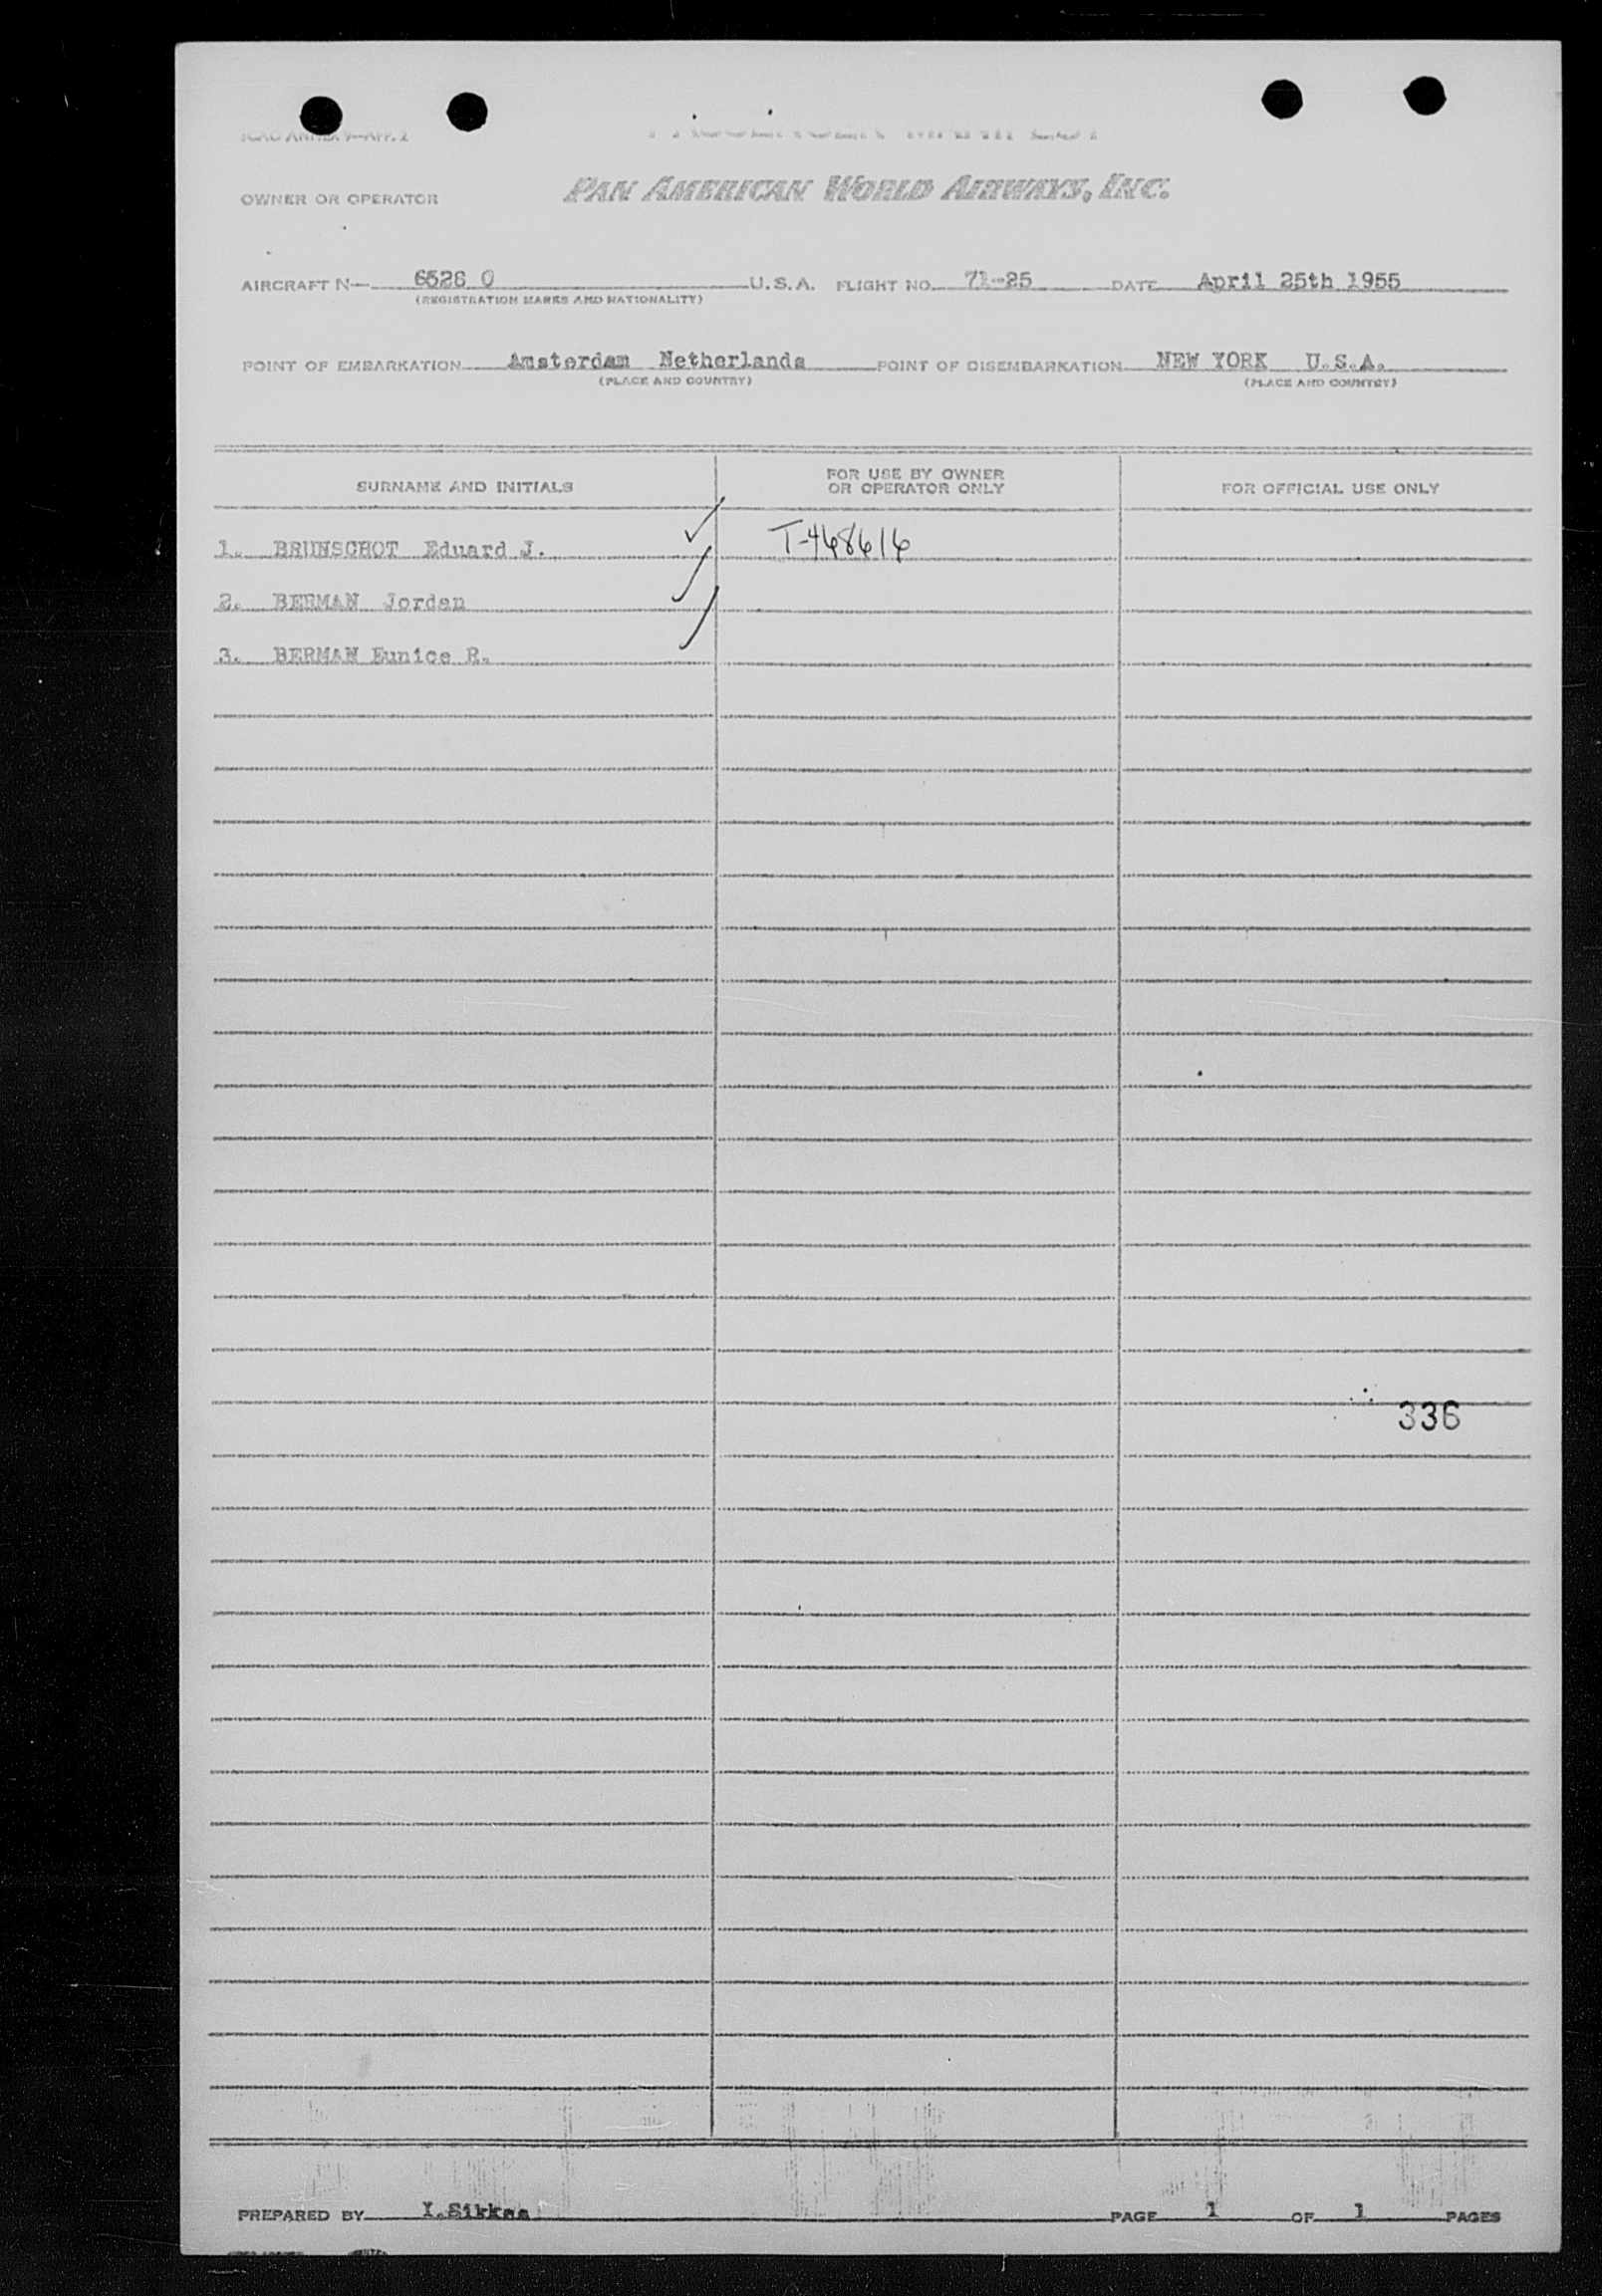 ICAO ANNEX 9—APP. 2
OWNER OR OPERATOR PAN AMERICAN WORLD AIRWAYS, INC.
AIRCRAFT N— 6526 C U.S.A. FLIGHT NO. 71-25 DATE April 25th 1955
(REGISTRATION MARKS AND NATIONALITY)
POINT OF EMBARKATION Amsterdam Netherlands POINT OF DISEMBARKATION NEW YORK U.S.A.
(PLACE AND COUNTRY) (PLACE AND COUNTRY)
SURNAME AND INITIALS FOR USE BY OWNER OR OPERATOR ONLY FOR OFFICIAL USE ONLY
1. BRUNSCHOT Eduard J. T-468616
2. BERMAN Jordan
3. BERMAN Eunice R.
336
PREPARED BY I.Sikkes PAGE 1 OF 1 PAGES